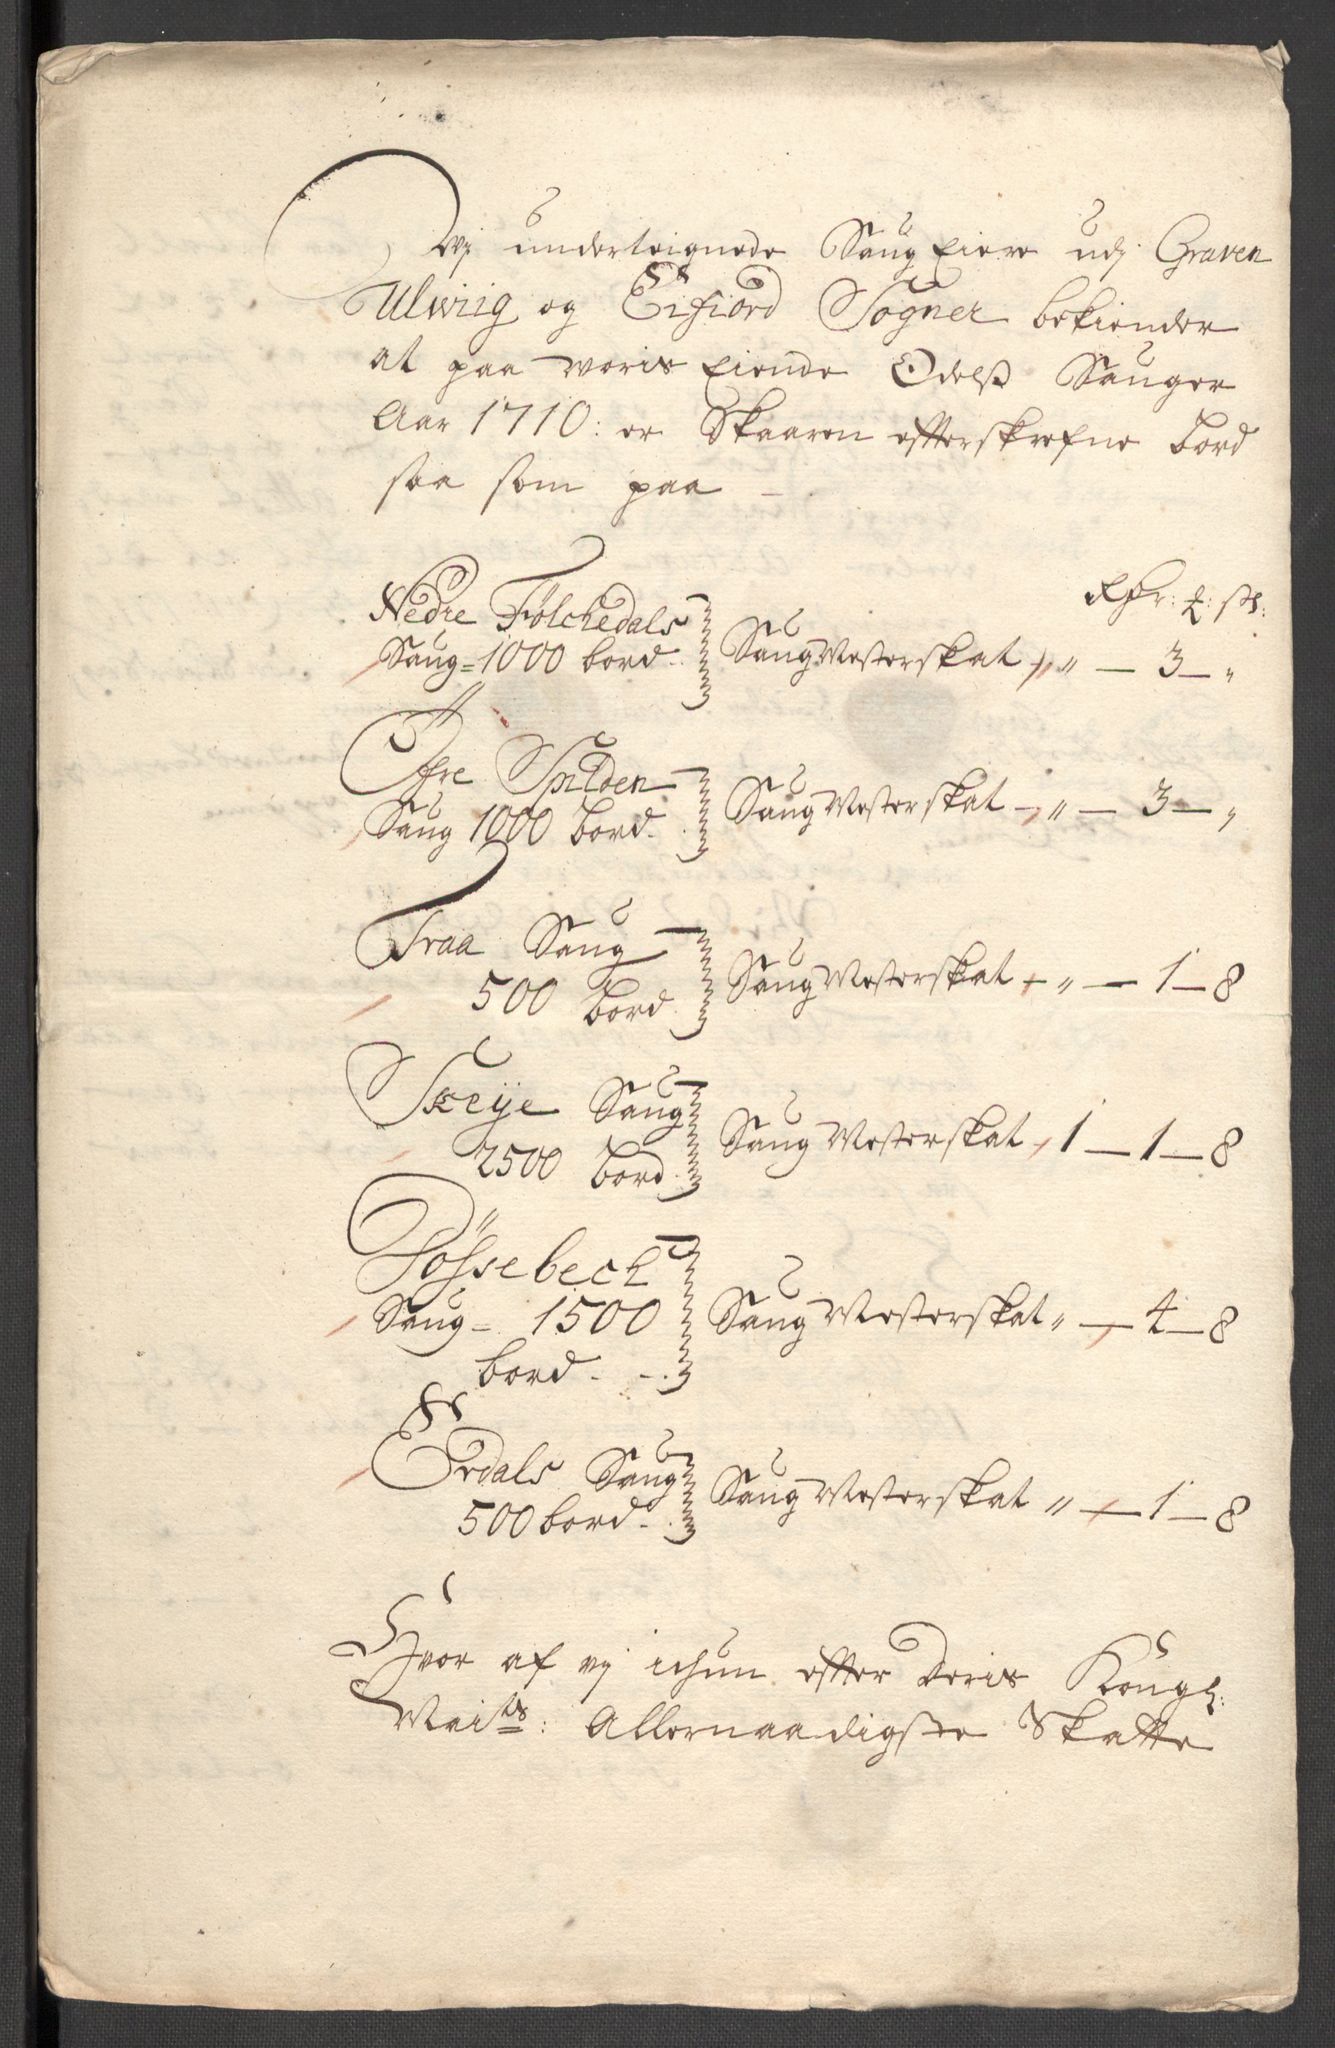 Wj underteignede Saug Eiere udj Graven
Ulwiig og Eifiord Sogner bekiender
at paa woris Eiende Odelss Sauger
Aar 1710: er Skaaren efterskrefne bord
saa som paa -
Rdr: ℔: sk:
Nedre Fölchedals
Saug = 1000 bord. SaugMesterskat - " - 3 - "
Öfre Spilden
Saug 1000 bord. SaugMesterskat - " - 3 - "
Traa Saug
500 bord SaugMesterskat - " - 1 - 8
Skeije Saug
2500 bord SaugMesterskat - 1 - 1 - 8
Pössebech
Saug - 1500 SaugMesterskat " - 4 - 8
bord. - .
Erdals Saug
500 bord. SaugMesterskat " - 1 - 8
Hvor af vj ichun efter Deris Kongl:
Maits: Allernaadigste Skatte